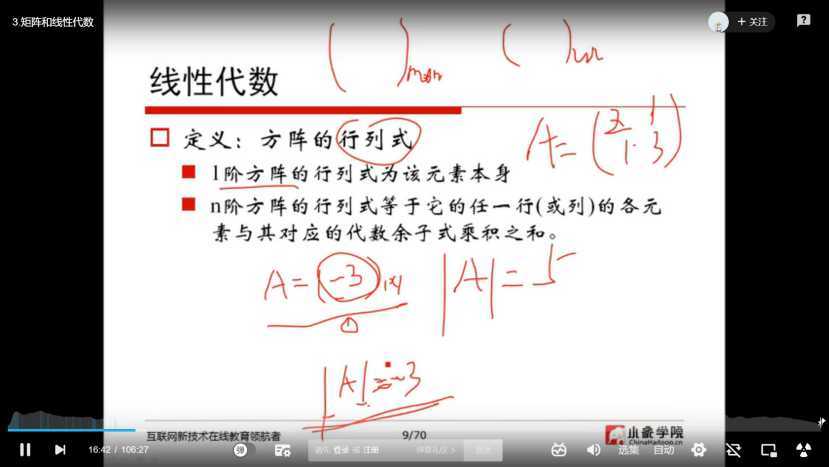 3.矩阵和线性代数
+ 关注
线性代数
定义：方阵的行列式
1阶方阵的行列式为该元素本身
n阶方阵的行列式等于它的任一行(或列)的各元
素与其对应的代数余子式乘积之和。
A = ( 2 1
1 3 )
A = (-3) 1×1
|A| = 5
|A| = -3
互联网新技术在线教育领航者
9/70
小象学院
ChinaHadoop.cn
16:42 / 106:27
请先 登录 或 注册
弹幕礼仪 >
发送
选集
自动